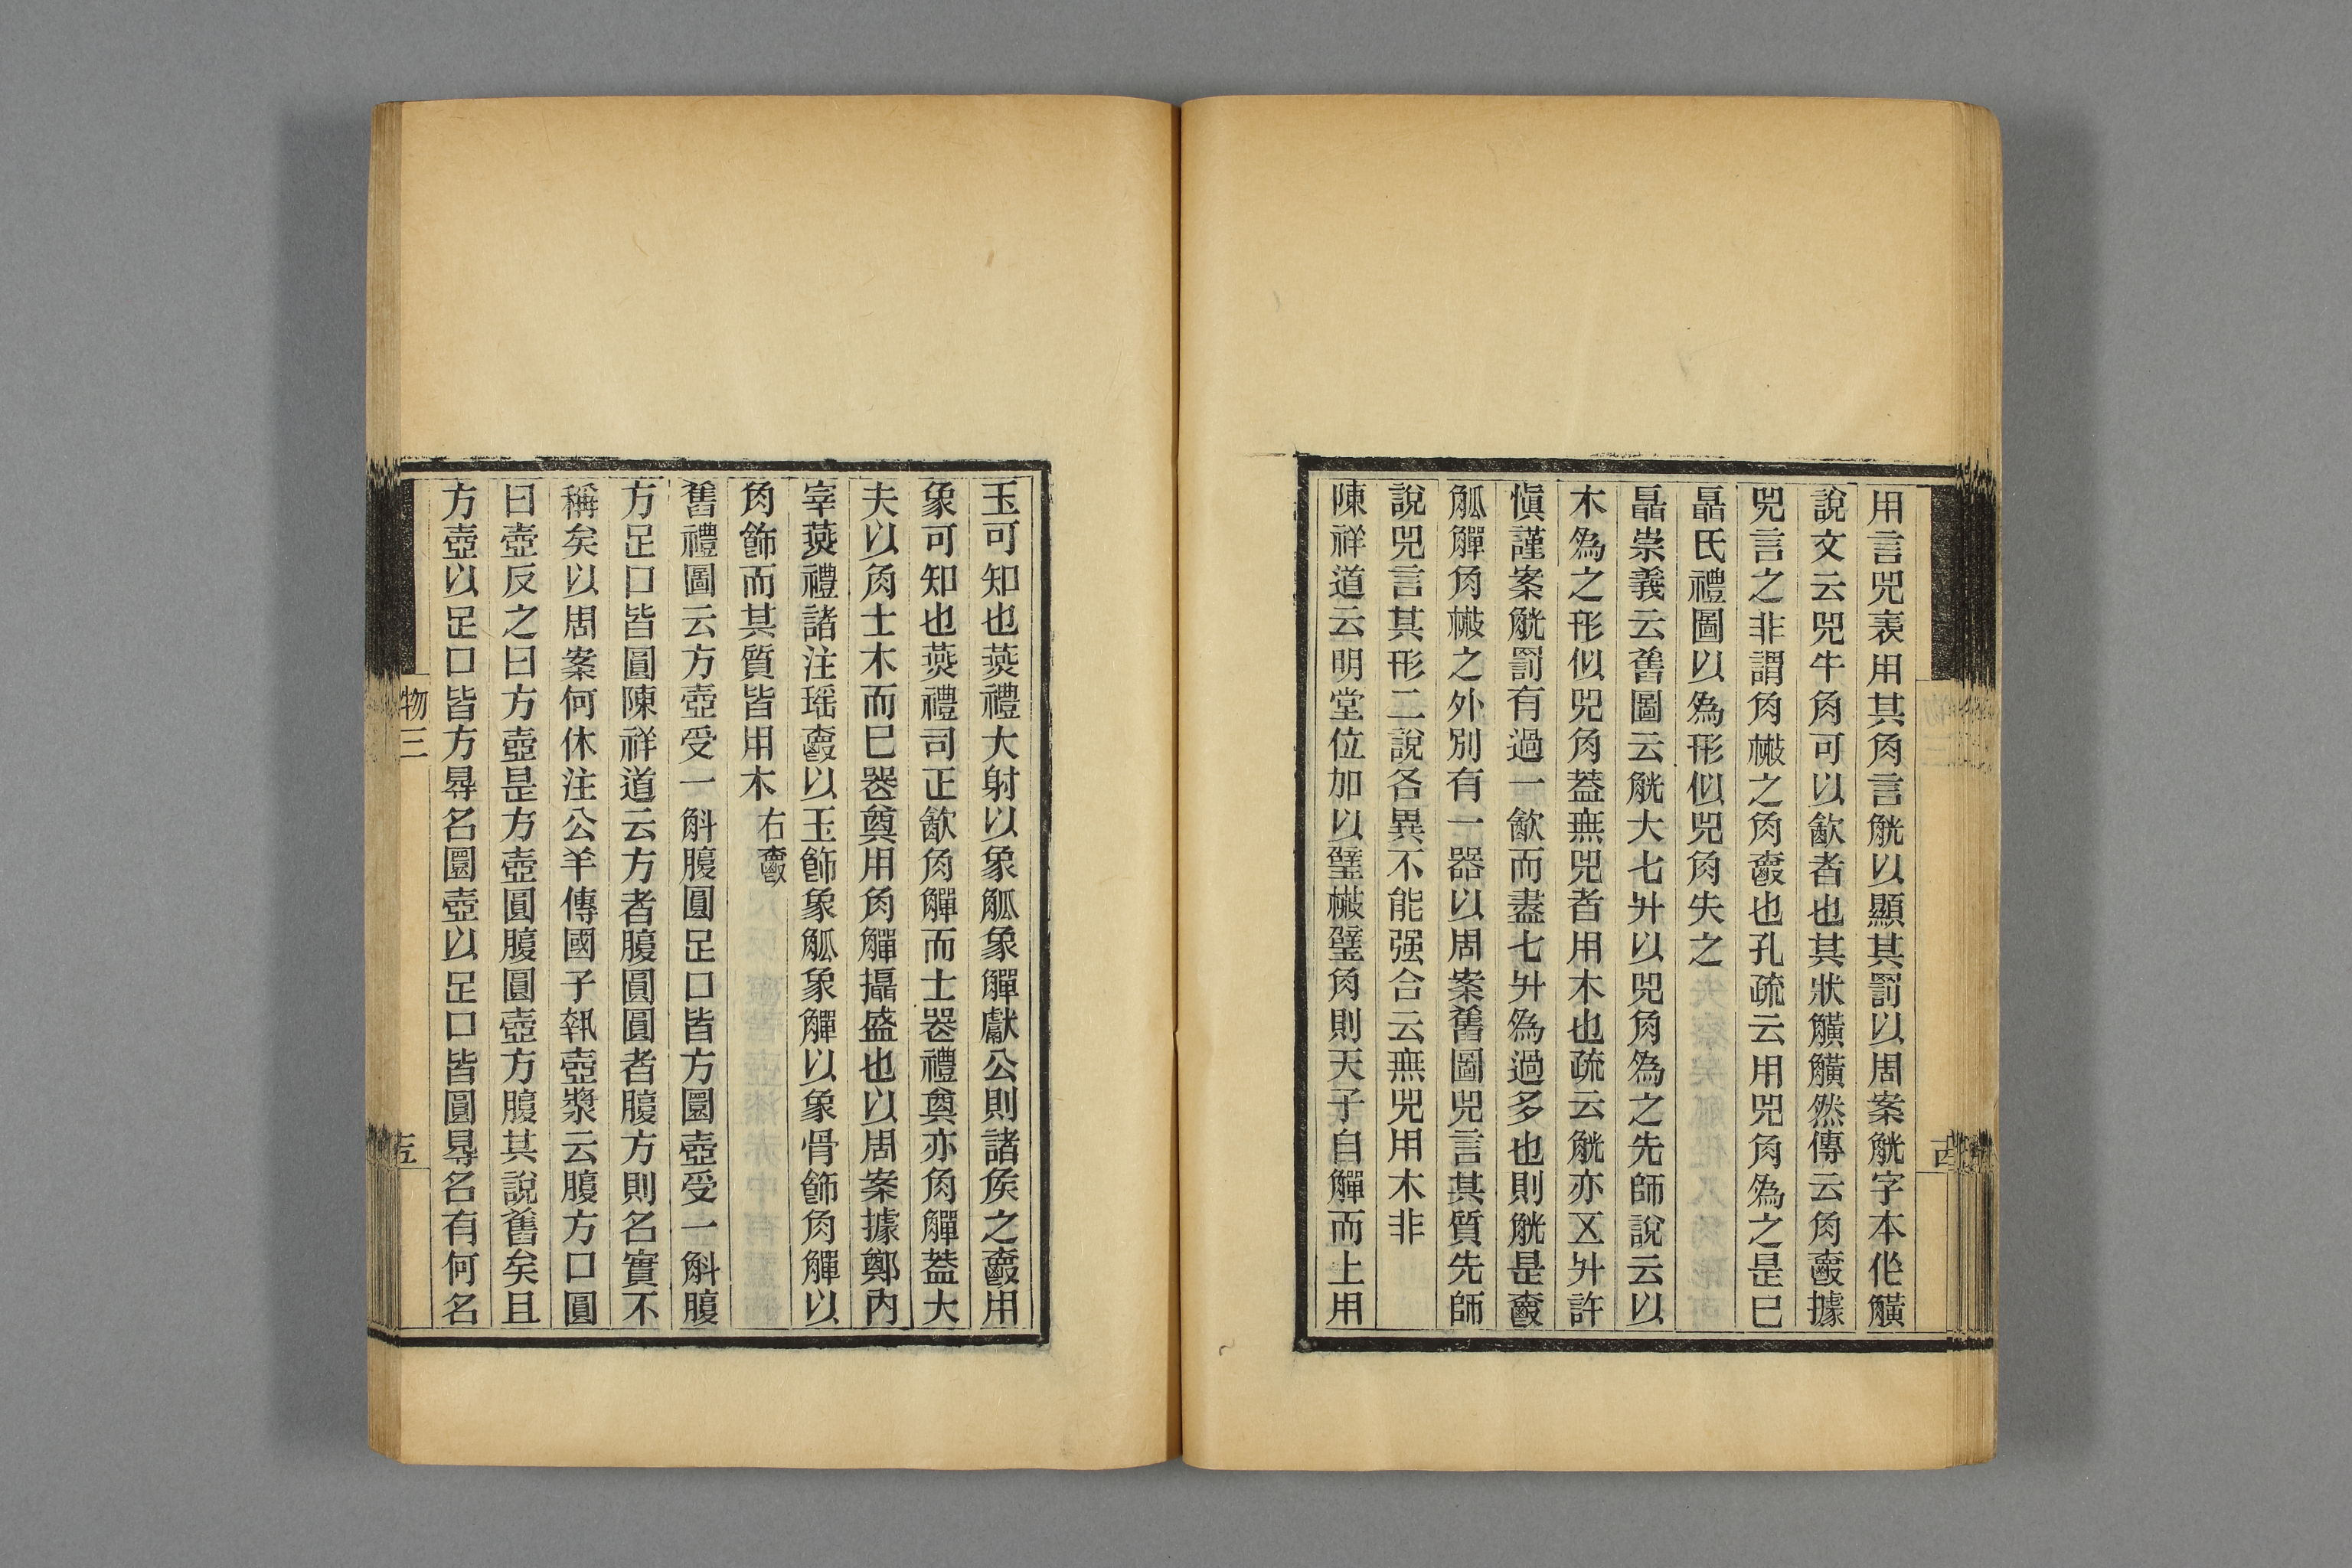 用言兕表用其角言觥以顯其罰以周案觥字本作觵
說文云兕牛角可以飲者也其狀觵觵然傳云角爵據
兕言之非謂角樧之角爵也孔疏云用兕角爲之是已
聶氏禮圖以爲形似兕角失之
聶崇義云舊圖云觥大七升以兕角爲之先師說云以
木爲之形似兕角蓋無兕者用木也疏云觥亦五升許
愼謹案觥罰有過一飲而盡七升爲過多也則觥是爵
觚觶角樧之外別有一器以周案舊圖兕言其質先師
說兕言其形二說各異不能强合云無兕用木非
陳祥道云明堂位加以璧樧璧角則天子自觶而上用
玉可知也燕禮大射以象觚象觶獻公則諸侯之爵用
象可知也燕禮司正飲角觶而士器禮奠亦角觶蓋大
夫以角士木而已器奠用角觶攝盛也以周案據鄭內
宰燕禮諸注瑶爵以玉飾象觚象觶以象骨飾角觶以
角飾而其質皆用木 右爵
舊禮圖云方壺受一斛腹圓足口皆方圜壺受一斛腹
方足口皆圓陳祥道云方者腹圓圓者腹方則名實不
稱矣以周案何休注公羊傳國子執壺漿云腹方口圓
曰壺反之曰方壺是方壺圓腹圓壺方腹其說舊矣且
方壺以足口皆方㝵名圜壺以足口皆圓㝵名有何名
物三